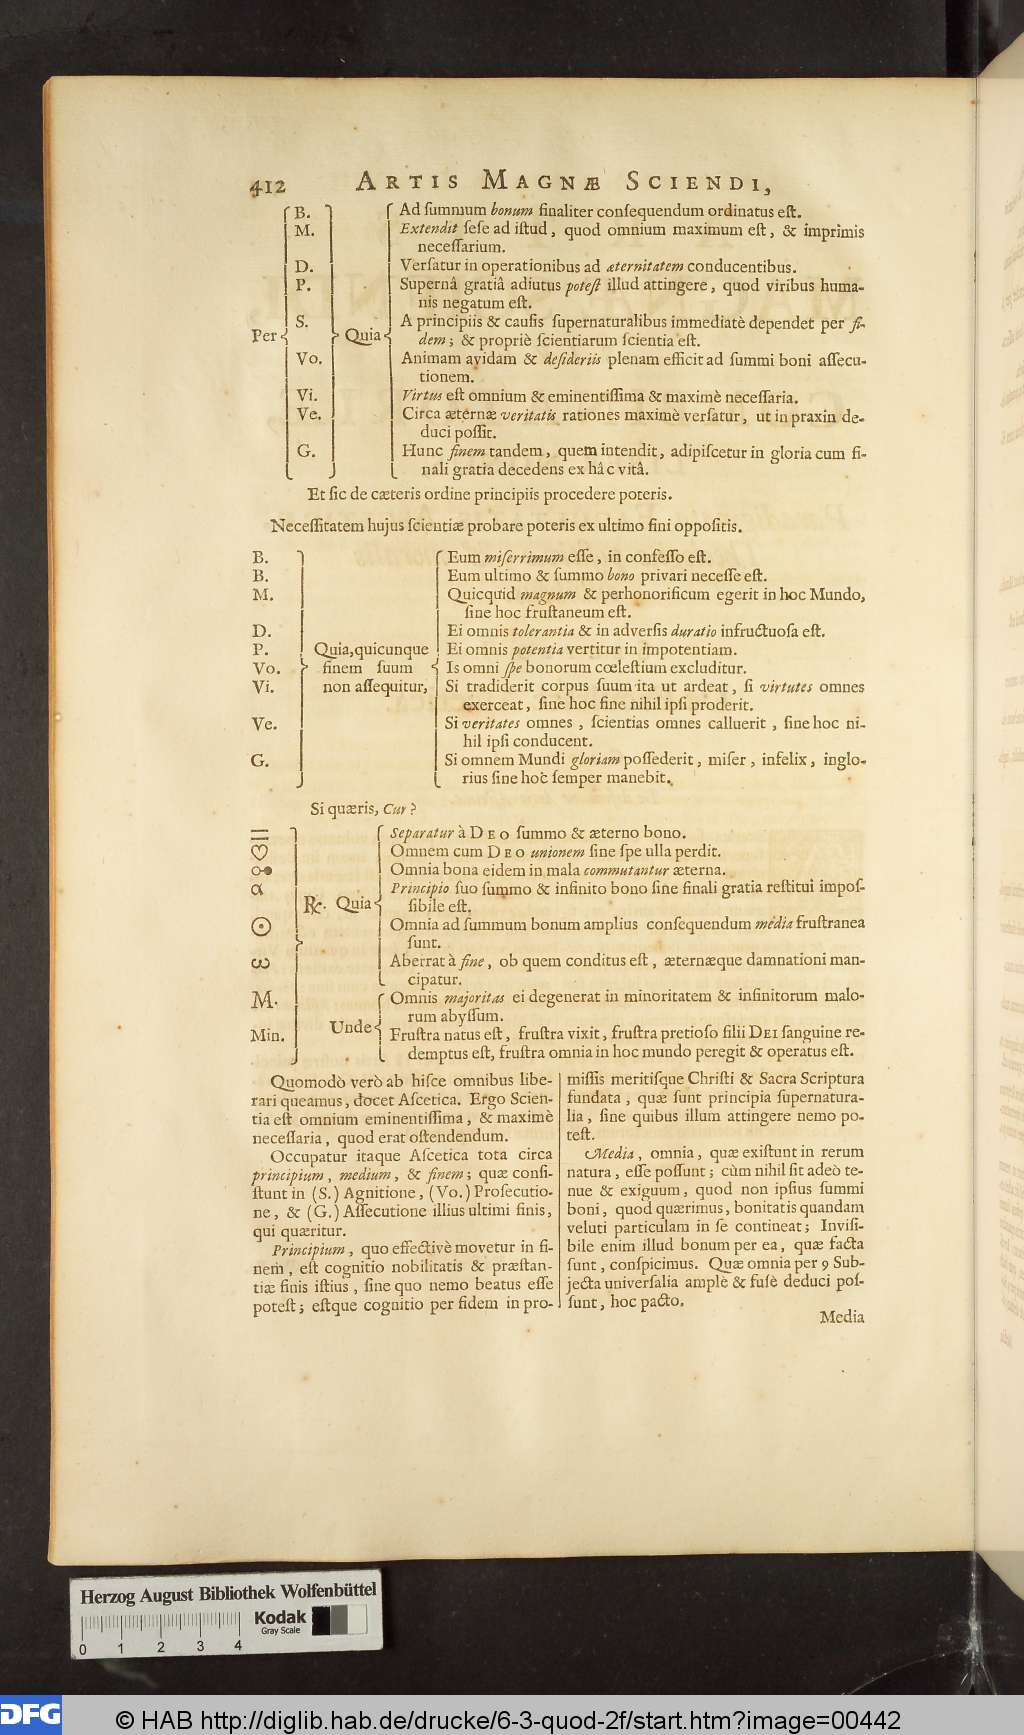 412 ARTIS MAGNÆ SCIENDI,
B. Ad ſummum bonum finaliter conſequendum ordinatus eſt.
M. Extendit ſeſe ad iſtud, quod omnium maximum eſt, & imprimis
neceſſarium.
D. Verſatur in operationibus ad æternitatem conducentibus.
P. Supernâ gratiâ adiutus poteſt illud attingere, quod viribus huma-
nis negatum eſt.
S. A principiis & cauſis ſupernaturalibus immediatè dependet per fi-
Per Quia dem; & propriè ſcientiarum ſcientia eſt.
Vo. Animam avidam & deſideriis plenam efficit ad ſummi boni aſſecu-
tionem.
Vi. Virtus eſt omnium & eminentiſſima & maximè neceſſaria.
Ve. Circa æternæ veritatis rationes maximè verſatur, ut in praxin de-
duci poſſit.
G. Hunc finem tandem, quem intendit, adipiſcetur in gloria cum fi-
nali gratia decedens ex hâc vitâ.
Et ſic de cæteris ordine principiis procedere poteris.
Neceſſitatem hujus ſcientiæ probare poteris ex ultimo fini oppoſitis.
B. Eum miſerrimum eſſe, in confeſſo eſt.
B. Eum ultimo & ſummo bono privari neceſſe eſt.
M. Quicquid magnum & perhonorificum egerit in hoc Mundo,
ſine hoc fruſtaneum eſt.
D. Ei omnis tolerantia & in adverſis duratio infructuoſa eſt.
P. Quia, quicunque Ei omnis potentia vertitur in impotentiam.
Vo. finem ſuum Is omni ſpe bonorum cœleſtium excluditur.
Vi. non aſſequitur, Si tradiderit corpus ſuum ita ut ardeat, ſi virtutes omnes
exerceat, ſine hoc fine nihil ipſi proderit.
Ve. Si veritates omnes, ſcientias omnes calluerit, ſine hoc ni-
hil ipſi conducent.
G. Si omnem Mundi gloriam poſſederit, miſer, infelix, inglo-
rius ſine hoc ſemper manebit.
Si quæris, Cur?
Separatur à DEO ſummo & æterno bono.
Omnem cum DEO unionem ſine ſpe ulla perdit.
Omnia bona eidem in mala commutantur æterna.
α Principio ſuo ſummo & infinito bono ſine finali gratia reſtitui impoſ-
℞. Quia ſibile eſt.
☉ Omnia ad ſummum bonum amplius conſequendum média fruſtranea
ſunt.
ω Aberrat à fine, ob quem conditus eſt, æternæque damnationi man-
cipatur.
M. Omnis majoritas ei degenerat in minoritatem & infinitorum malo-
Unde rum abyſſum.
Min. Fruſtra natus eſt, fruſtra vixit, fruſtra pretioſo filii DEI ſanguine re-
demptus eſt, fruſtra omnia in hoc mundo peregit & operatus eſt.
Quomodò verò ab hiſce omnibus libe-
rari queamus, docet Aſcetica. Ergo Scien-
tia eſt omnium eminentiſſima, & maximè
neceſſaria, quod erat oſtendendum.
Occupatur itaque Aſcetica tota circa
principium, medium, & finem; quæ conſi-
ſtunt in (S.) Agnitione, (Vo.) Proſecutio-
ne, & (G.) Aſſecutione illius ultimi finis,
qui quæritur.
Principium, quo effectivè movetur in fi-
nem, eſt cognitio nobilitatis & præſtan-
tiæ finis iſtius, ſine quo nemo beatus eſſe
poteſt; eſtque cognitio per fidem in pro-
miſſis meritiſque Chriſti & Sacra Scriptura
fundata, quæ ſunt principia ſupernatura-
lia, ſine quibus illum attingere nemo po-
teſt.
Media, omnia, quæ exiſtunt in rerum
natura, eſſe poſſunt; cùm nihil ſit adeò te-
nue & exiguum, quod non ipſius ſummi
boni, quod quærimus, bonitatis quandam
veluti particulam in ſe contineat; Inviſi-
bile enim illud bonum per ea, quæ facta
ſunt, conſpicimus. Quæ omnia per 9 Sub-
jecta univerſalia amplè & fuſè deduci poſ-
ſunt, hoc pacto.
Media
Herzog August Bibliothek Wolfenbüttel
Kodak
Gray Scale
0 1 2 3 4
DFG © HAB http://diglib.hab.de/drucke/6-3-quod-2f/start.htm?image=00442